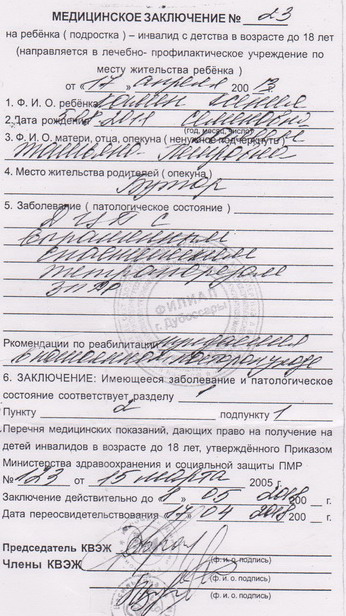 МЕДИЦИНСКОЕ ЗАКЛЮЧЕНИЕ № 23
на ребёнка ( подростка ) – инвалид с детства в возрасте до 18 лет
(направляется в лечебно- профилактическое учреждение по
месту жительства ребёнка )
от « 17 » апреля 200 13.
1. Ф. И. О. ребёнка
2. Дата рождения Семеновны
(год, месяц, число)
3. Ф. И. О. матери, отца, опекуна ( ненужное подчеркнуть )
Татьяна
4. Место жительства родителей ( опекуна )
Бутор
5. Заболевание ( патологическое состояние )
ДЦП с
выраженным
спастическим
тетрапарезом
ЗПРР
ФИЛИАЛ
г. Дубоссары
Ркомендации по реабилитации нуждается
в постоянном постор. уходе
6. ЗАКЛЮЧЕНИЕ: Имеющееся заболевание и патологическое
состояние соответствует разделу 1
Пункту 2 подпункту 1
Перечня медицинских показаний, дающих право на получение на
детей инвалидов в возрасте до 18 лет, утверждённого Приказом
Министерства здравоохранения и социальной защиты ПМР
№ 123 от 15 марта 2005 г.
Заключение действительно до « » 05 2018 200 г.
Дата переосвидетельствования « 17 » 04 2018 200 г.
Председатель КВЭЖ
(ф. и. о. подпись)
Члены КВЭЖ
(ф. и. о. подпись)
(ф. и. о. подпись)